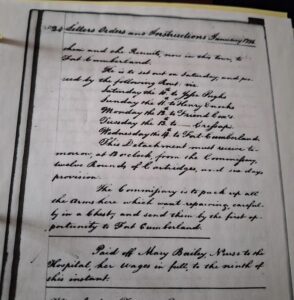 Letters Orders and Instructions January 1756
them and the Recruits, now in this town, to
Fort Cumberland.
He is to set out on Saturday, and pro-
ceed by the following Rout. viz
Saturday the 10th to
Sunday the 11th to Henry Enochs
Monday the 12th to Friend Cox's
Tuesday the 13th to Cresaps
Wednesday the 14th to Fort Cumberland.
This Detachment must receive to-
morrow, at 8 oclock from the Commissary,
twelve Rounds of Cartridges, and six days
provision.
The Commissary is to pack up all
the Arms here which want repairing, careful-
ly in a Chest; and send them by the first op-
portunity to Fort Cumberland.
Paid off Mary Bailey, Nurse to the
Hospital, her wages in full, to the ninth of
this instant.